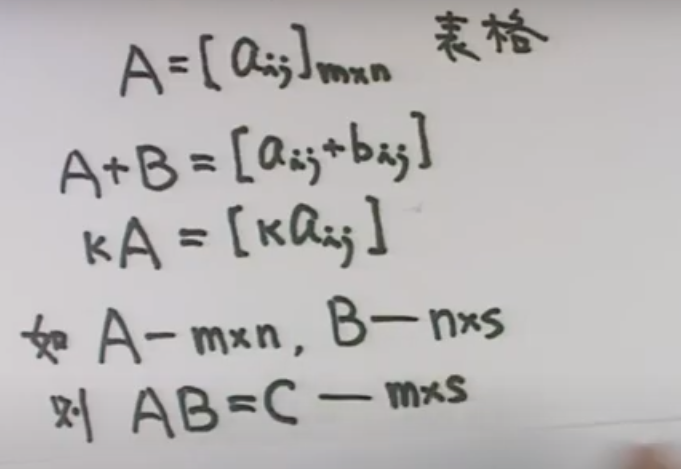 A=[aij]m×n 表格
A+B=[aij+bij]
kA=[kaij]
如 A—m×n, B—n×s
则 AB=C—m×s